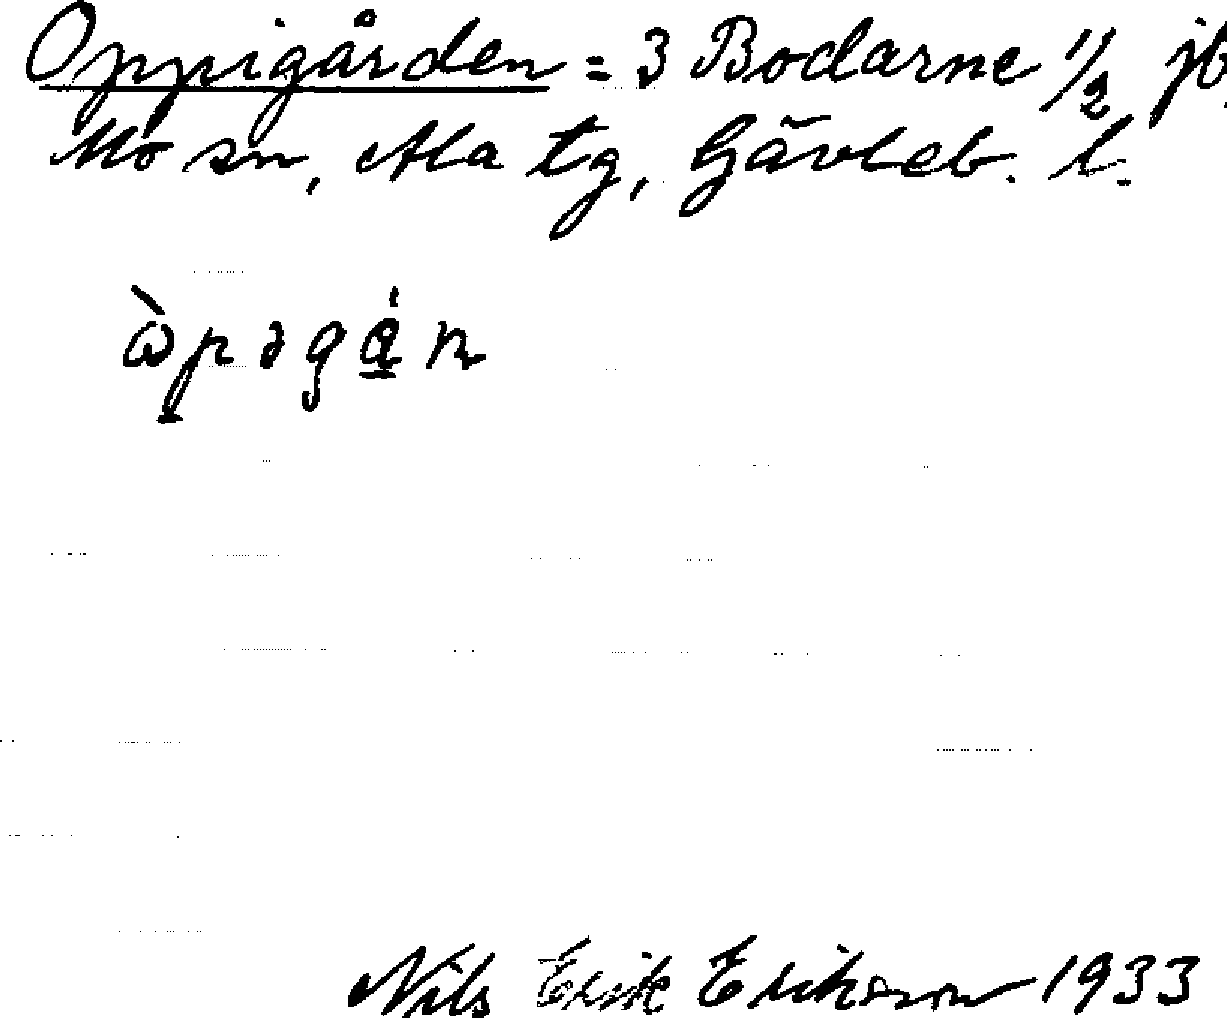 Oppigården = 3 Bodarne 1/2 jb.
Mo sn, Ala tg, Gävleb. l.
ὼpəgȧn
Nils Erik Erikson 1933